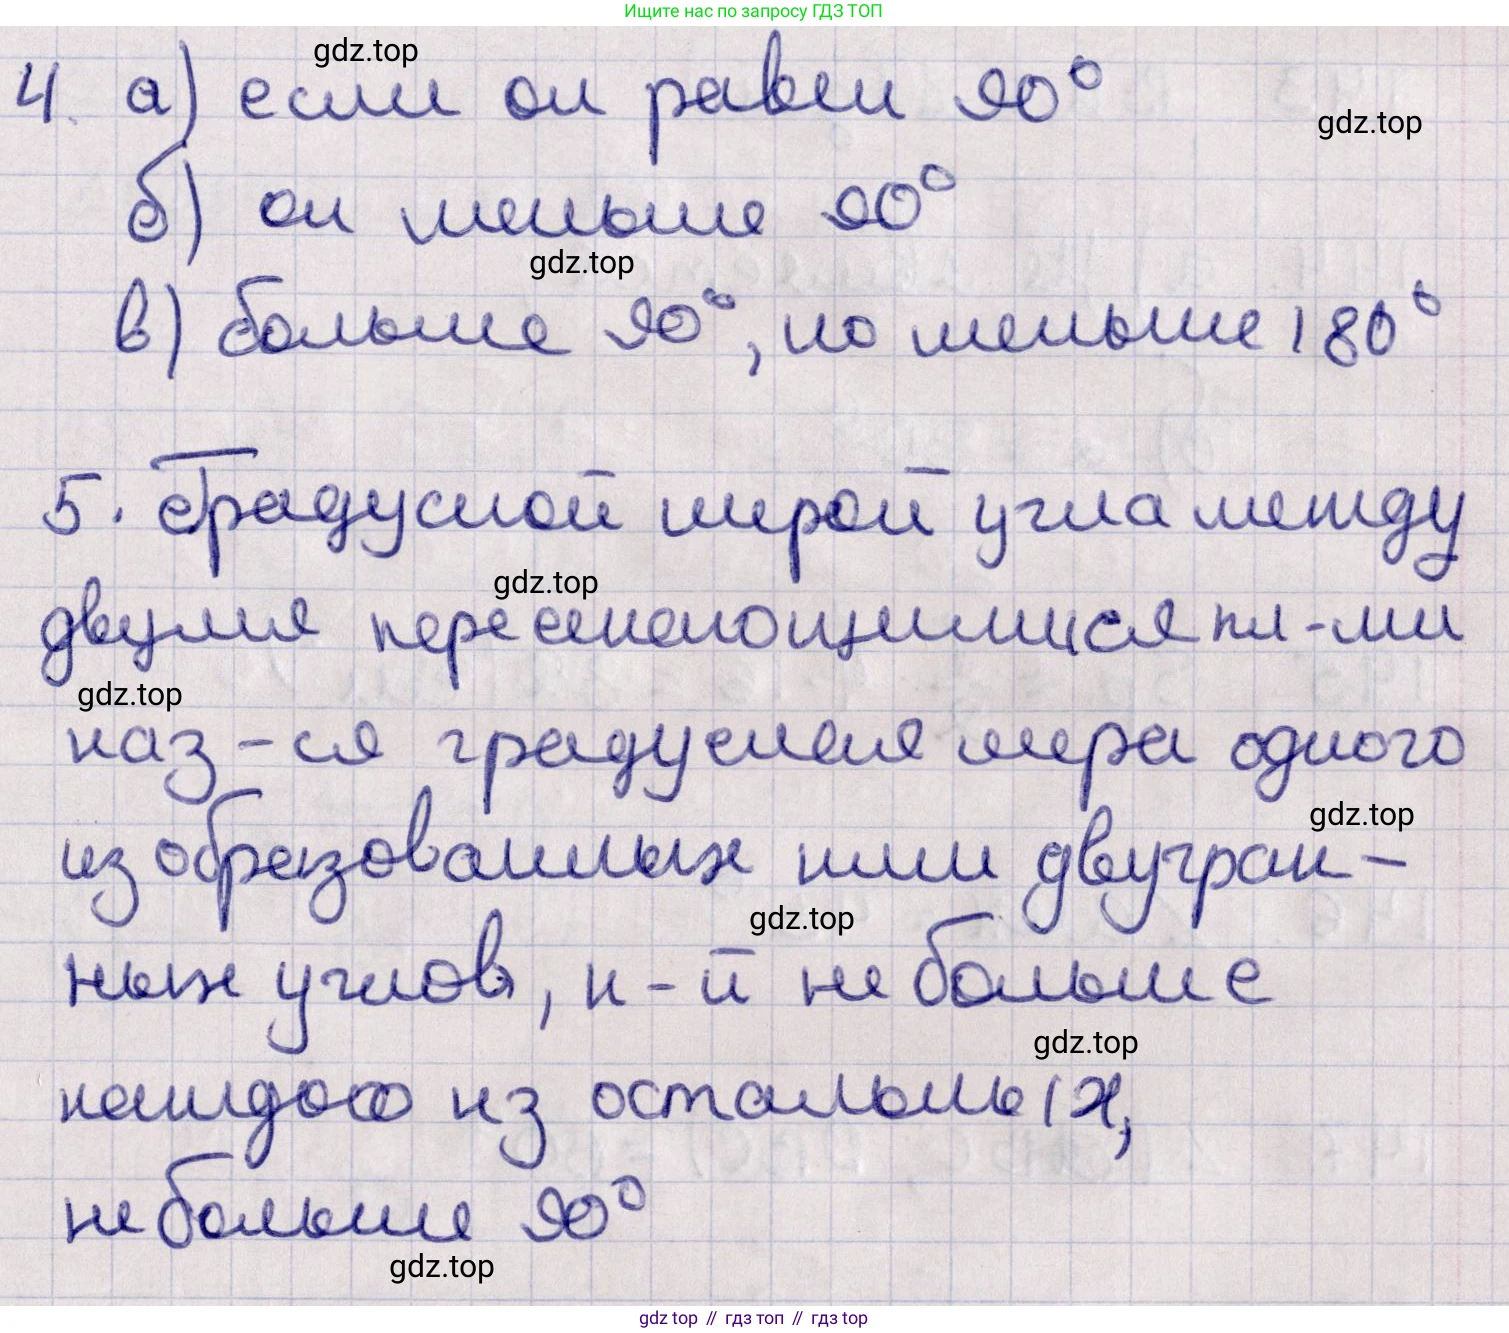 Ищите нас по запросу ГДЗ ТОП
gdz.top
4. а) если он равен 90°
gdz.top
б) он меньше 90°
gdz.top
в) больше 90°, но меньше 180°
5. Градусной мерой угла между
gdz.top
двумя пересекающимися пл-ми
gdz.top
наз-ся градусная мера одного
gdz.top
из образованных ними двугран-
gdz.top
ных углов, к-й не больше
gdz.top
каждого из остальных,
не больше 90°
gdz.top
gdz top // гдз топ // gdz top